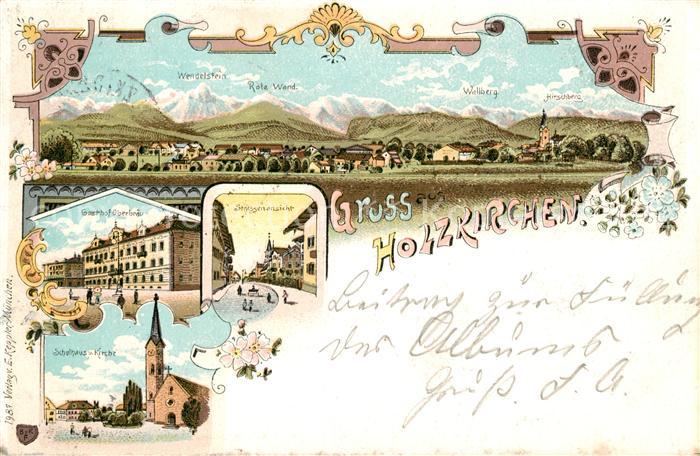 Wendelstein.
Rote Wand.
Wallberg.
Hirschberg.
Gasthof Oberbräu
Strassenansicht
Gruss aus
Holzkirchen.
Schulhaus u. Kirche
Beitrag zur Füllung
des Albums
Gruß. F. A.
1981 Verlag v. E. Keppler, München.